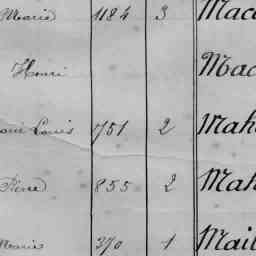 Marie 1184 3 Mac
Henri Mac
Louis 751 2 Mah
Pierre 855 2 Mah
Marie 370 1 Mail